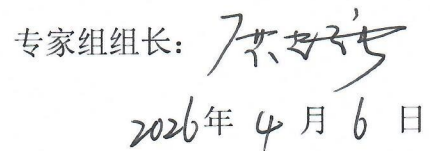 专家组组长：
2026年 4 月 6 日